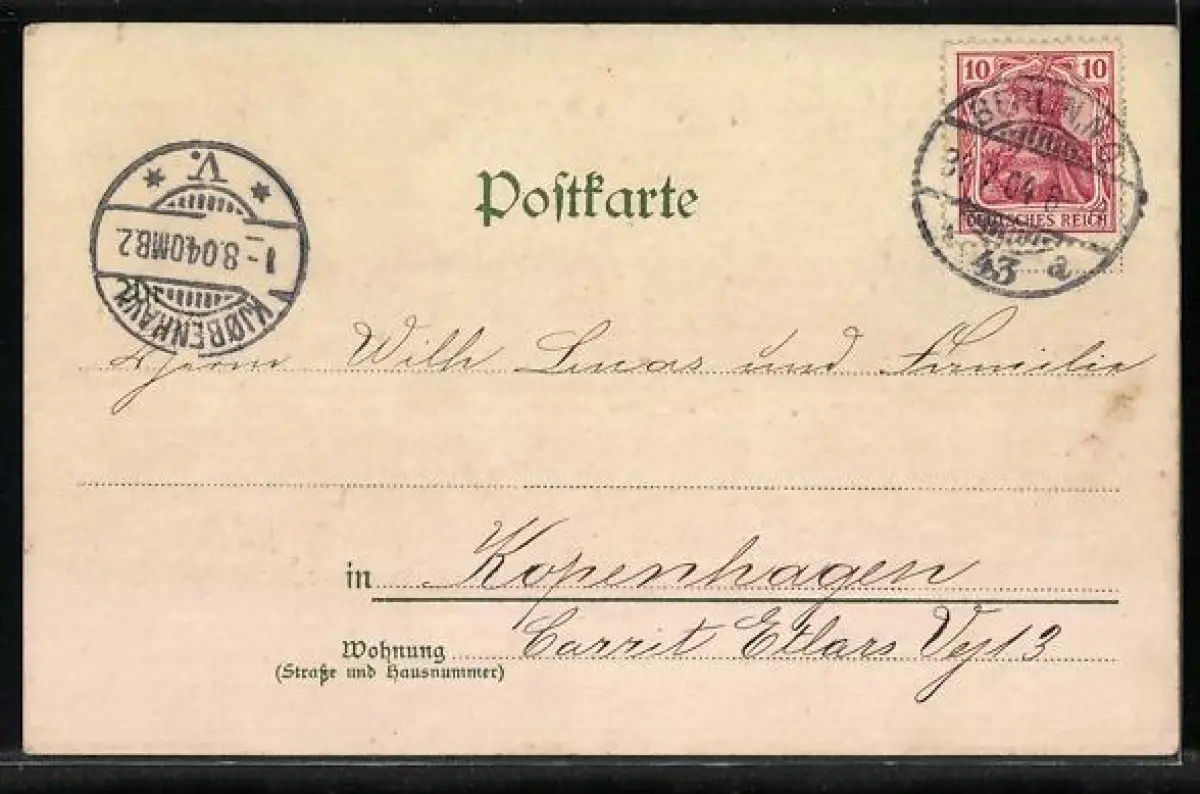 10 10
BERLIN.N.
04.6
DEUTSCHES REICH
43 a
V.
1-8.04 OMB.2
KJØBENHAVN
Postkarte
Herrn Wilh Lucas und Familie
in Kopenhagen
Wohnung Carrit Etlars Vej 13
(Straße und Hausnummer)